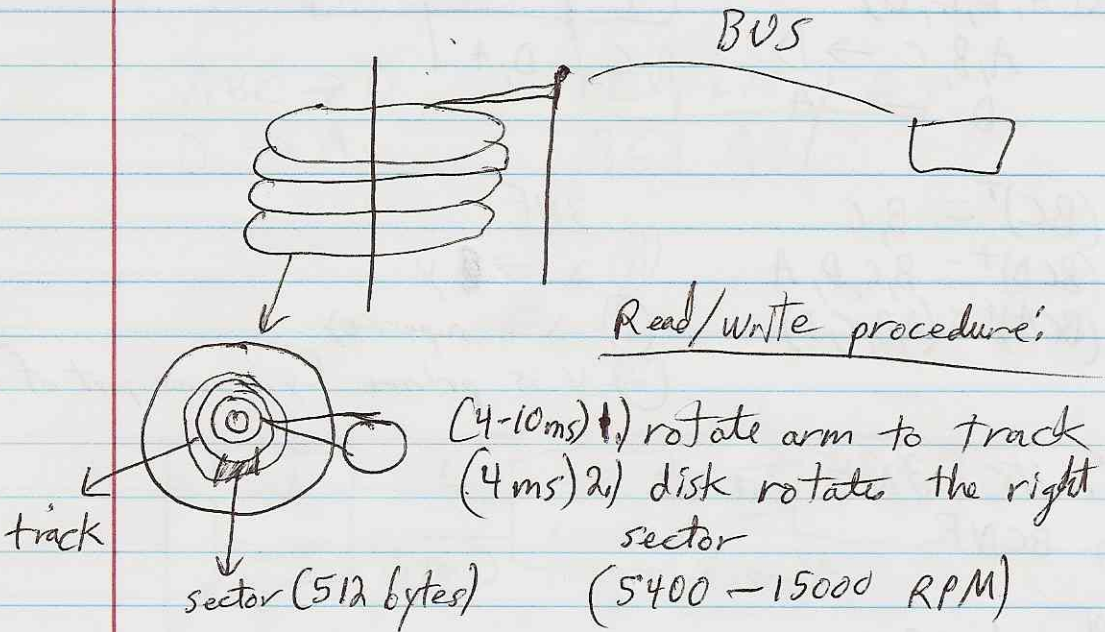 BUS
Read/Write procedure:
(4-10ms) 1.) rotate arm to track
(4ms) 2.) disk rotates the right
sector
(5400 - 15000 RPM)
track
sector (512 bytes)